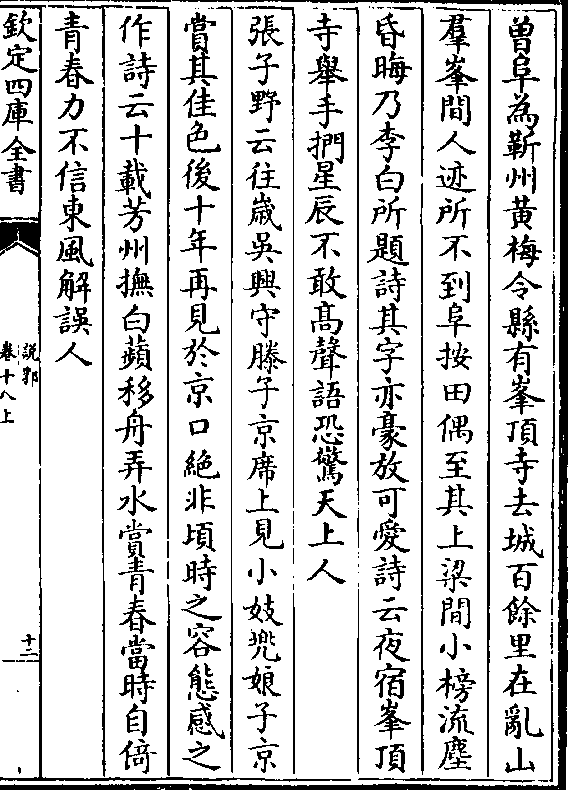 曾阜為蘄州黄梅令縣有峯頂寺去城百餘里在亂山
羣峯間人迹所不到阜按田偶至其上梁間小榜流塵
昏晦乃李白所題詩其字亦豪放可愛詩云夜宿峯頂
寺舉手捫星辰不敢髙聲語恐驚天上人
張子野云往嵗吳興守滕子京席上見小妓兠娘子京
賞其佳色後十年再見於京口絶非頃時之容態感之
作詩云十載芳州撫白蘋移舟弄水賞青春當時自倚
青春力不信東風解誤人
欽定四庫全書
說郛
卷十八上
十二